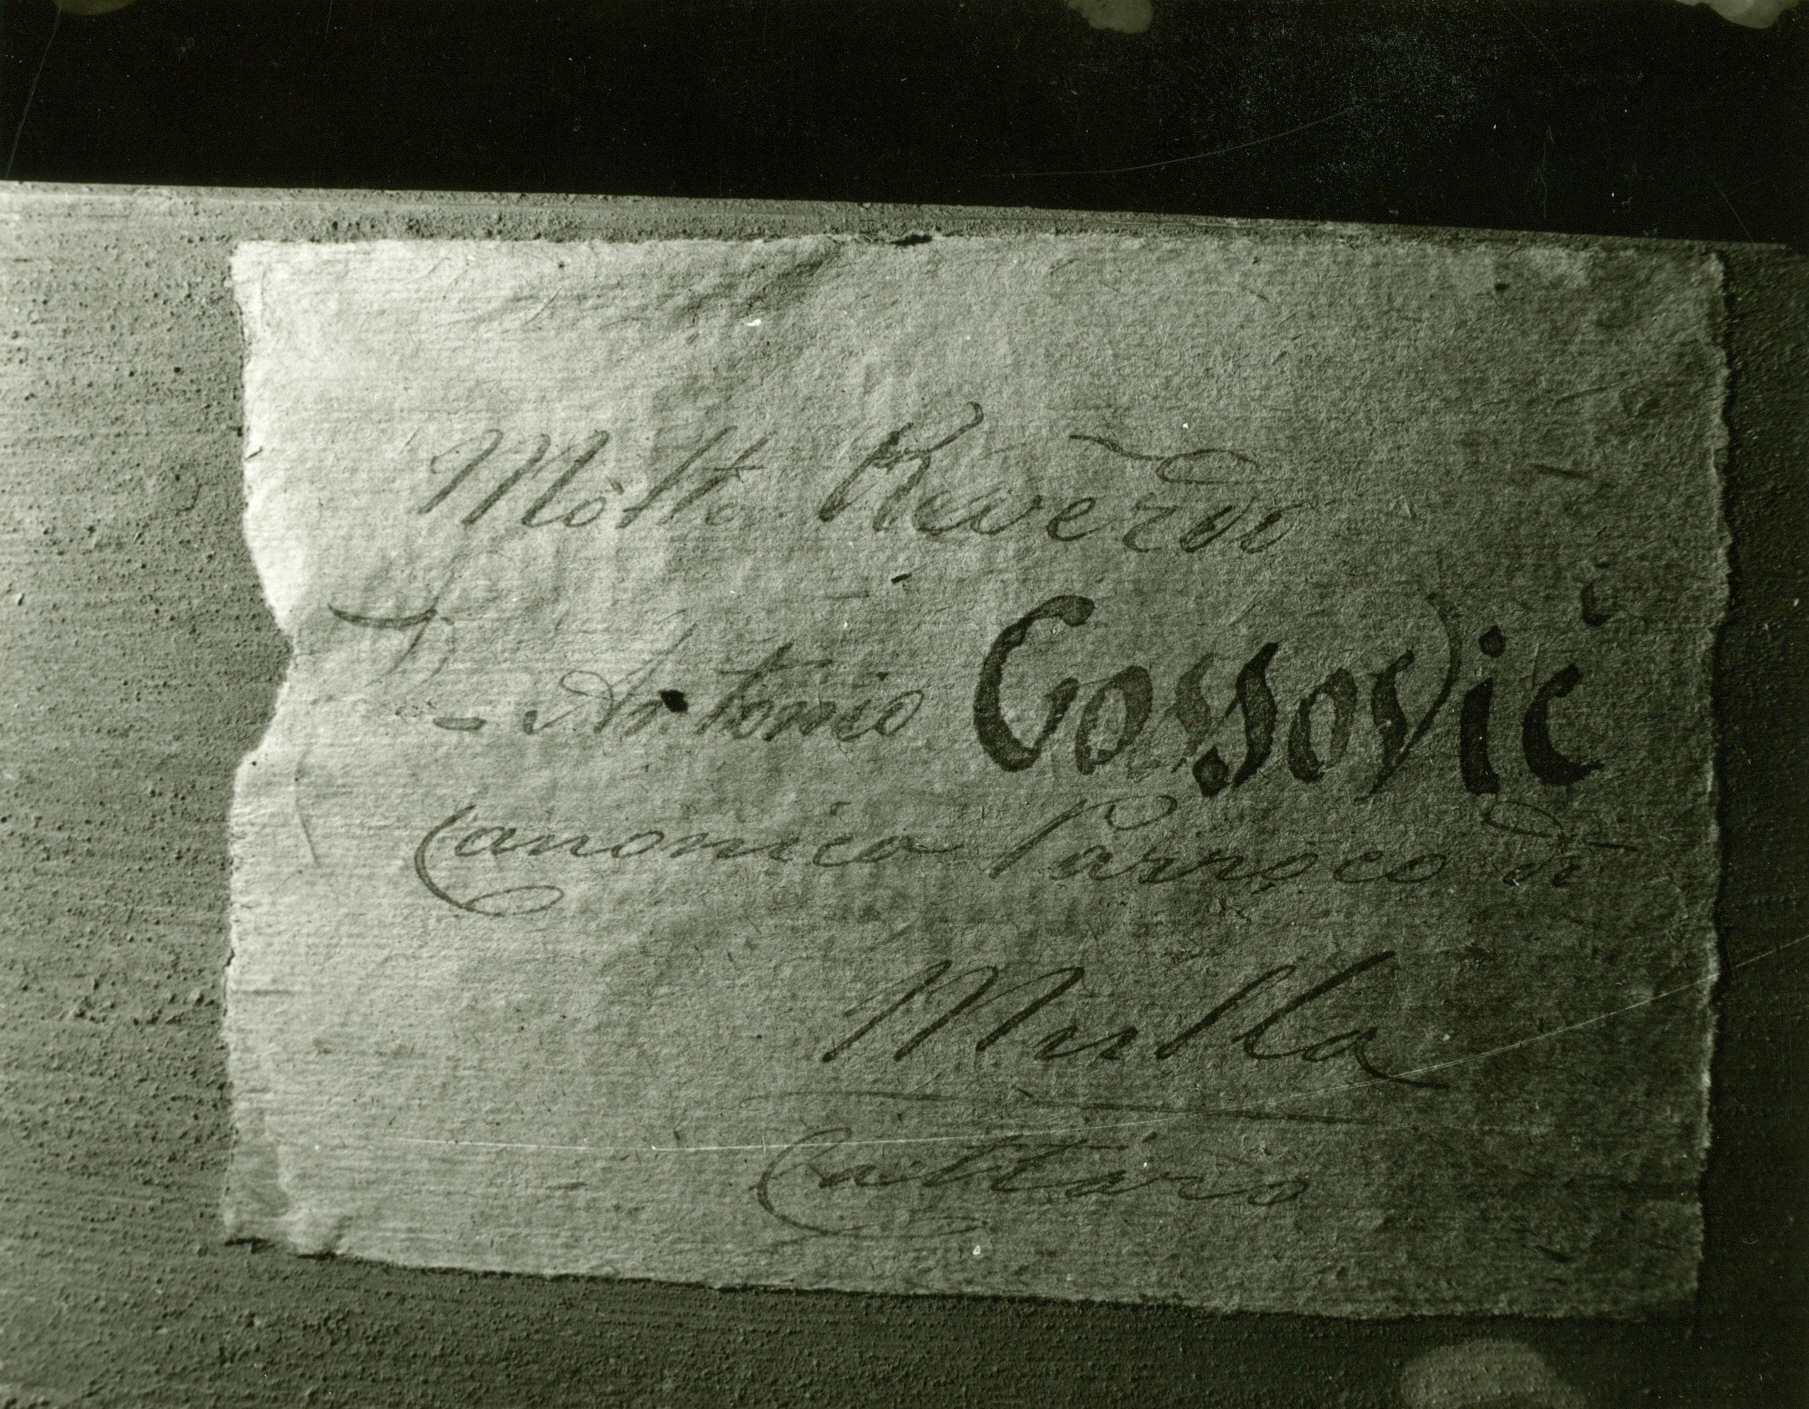 Molto Reverdo
D. Antonio Gossović
Canonico Parroco di
Mulla
Cattaro